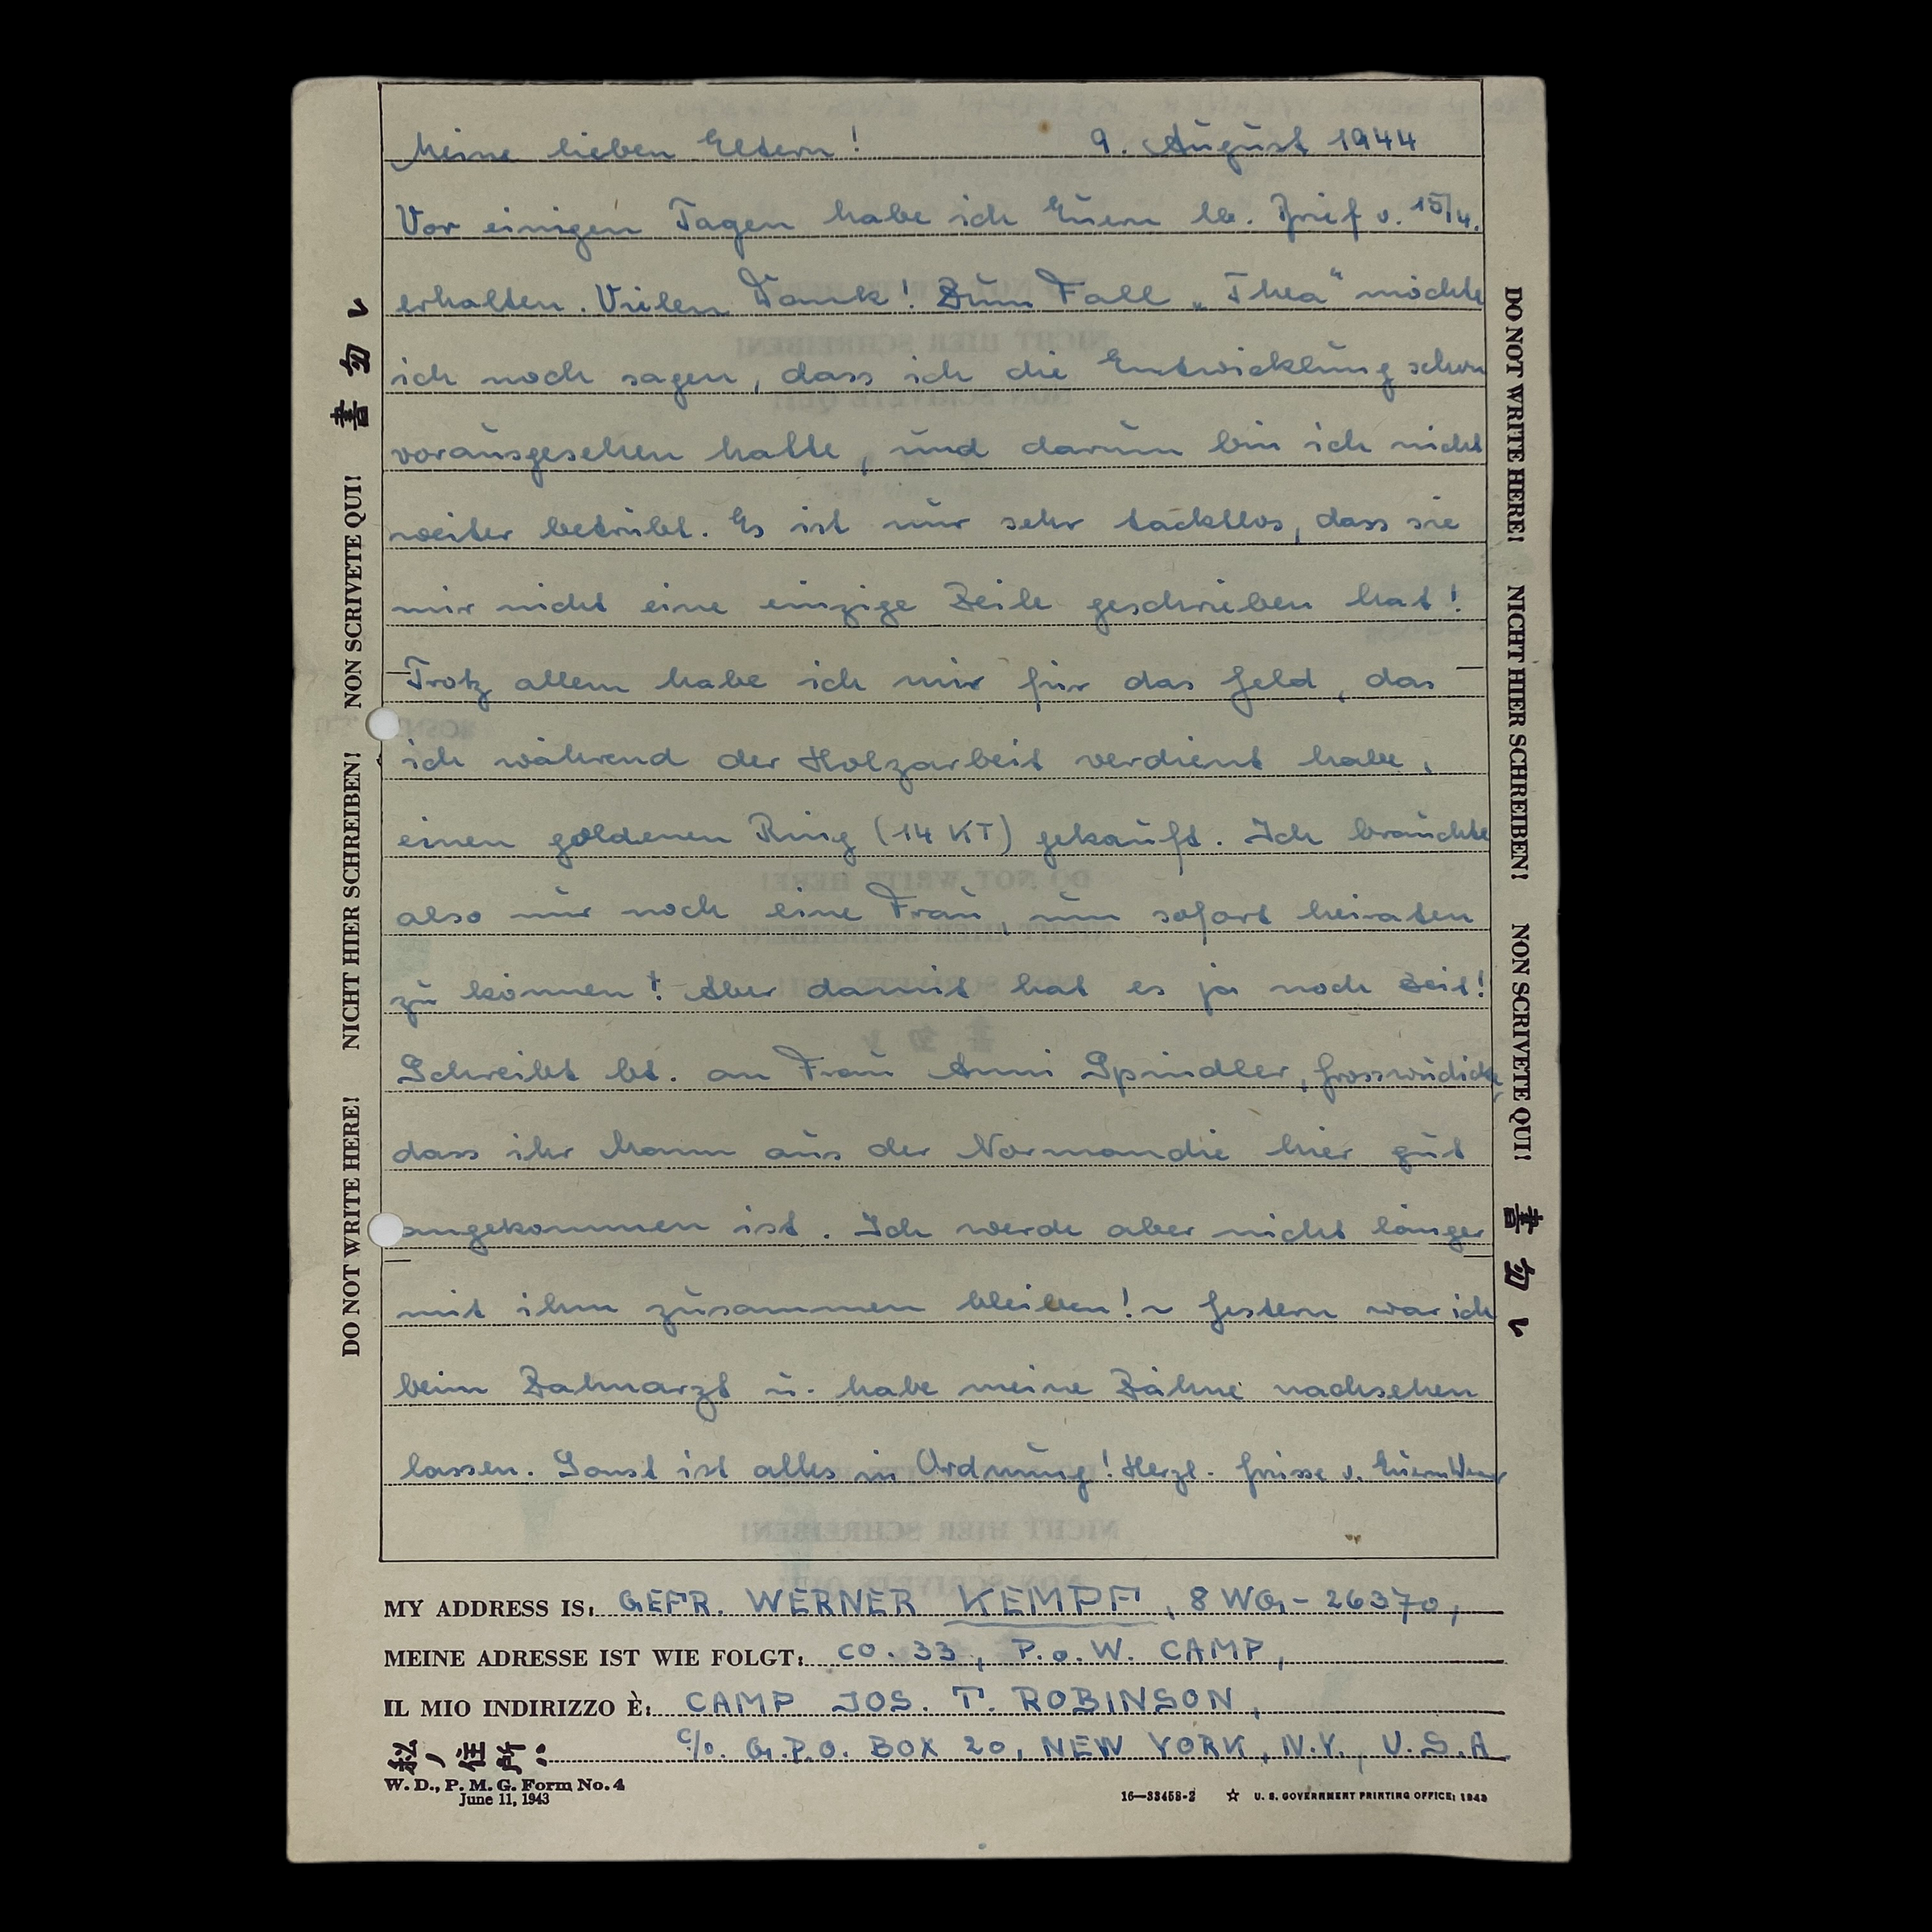 Meine lieben Eltern! 9. August 1944
Vor einigen Tagen habe ich Euern lb. Brief v. 15/4.
erhalten. Vielen Dank! Zum Fall „Thea“ möchte
ich noch sagen, dass ich die Entwicklung schon
vorausgesehen hatte, und darum bin ich nicht
weiter betrübt. Es ist nur sehr tacktlos, dass sie
mir nicht eine einzige Zeile geschrieben hat!
Trotz allem habe ich mir für das Geld, das
ich während der Holzarbeit verdient habe,
einen goldenen Ring (14 KT) gekauft. Ich brauchte
also nur noch eine Frau, um sofort heiraten
zu können! Aber damit hat es ja noch Zeit!
Schreibt bt. an Frau Anni Spindler, Grosswudicke,
dass ihr Mann aus der Normandie hier gut
angekommen ist. Ich werde aber nicht länger
mit ihm zusammen bleiben! ~ Gestern war ich
beim Zahnarzt u. habe meine Zähne nachsehen
lassen. Sonst ist alles in Ordnung! Herzl. Grüsse v. Euerm Werner
MY ADDRESS IS: GEFR. WERNER KEMPF, 8 WG - 26370,
MEINE ADRESSE IST WIE FOLGT: CO. 33, P.o.W. CAMP,
IL MIO INDIRIZZO È: CAMP JOS. T. ROBINSON,
私ノ住所: c/o. G.P.O. BOX 20, NEW YORK, N.Y., U.S.A.
W. D., P. M. G. Form No. 4
June 11, 1943
16—33458-2 ☆ U. S. GOVERNMENT PRINTING OFFICE: 1943
DO NOT WRITE HERE! NICHT HIER SCHREIBEN! NON SCRIVETE QUI! 書勿レ
DO NOT WRITE HERE! NICHT HIER SCHREIBEN! NON SCRIVETE QUI! 書勿レ